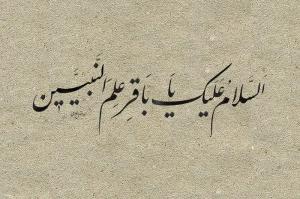 السَّلامُ عَلَیکَ یَا بَاقِرَ عِلمِ النَّبِیّینَ